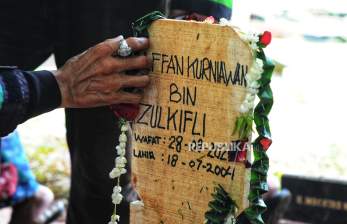 FFAN KURNIAWAN
BIN
ZULKIFLI
WAFAT : 28-
LAHIR : 18-07-2004
REPUBLIKA